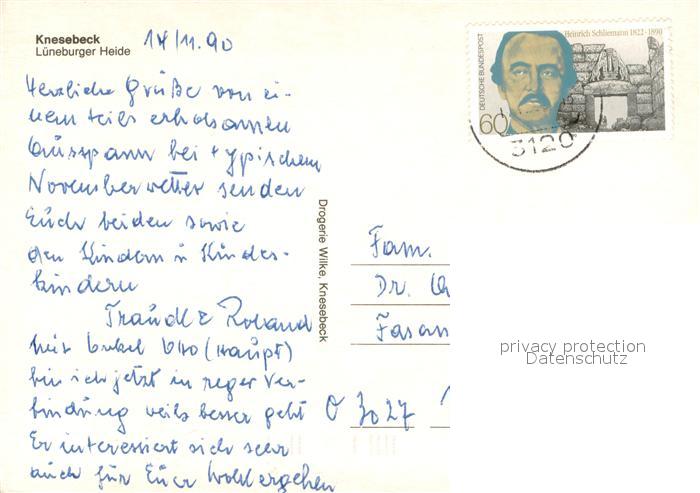 Knesebeck
Lüneburger Heide
14/11.90
Herzliche Grüße von ei-
nem teils erholsamen
Ausspann bei typischem
Novemberwetter senden
Euch beiden sowie
den Kindern u Kindes-
kindern
Traudl & Roland
Mit Onkel Otto (Haupt)
bin ich jetzt in reger Ver-
bindung weils besser geht
Er interessiert sich sehr
auch für Euer Wohlergehen
Drogerie Wilke, Knesebeck
DEUTSCHE BUNDESPOST
Heinrich Schliemann 1822-1890
60
3120
Fam.
Dr.
Fasan
O 3027
privacy protection
Datenschutz